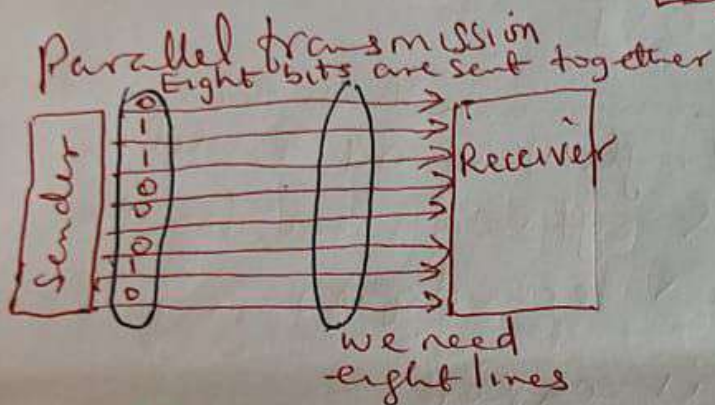 Parallel transmission
Eight bits are sent together
Sender
0
1
1
0
0
0
1
0
Receiver
we need
eight lines